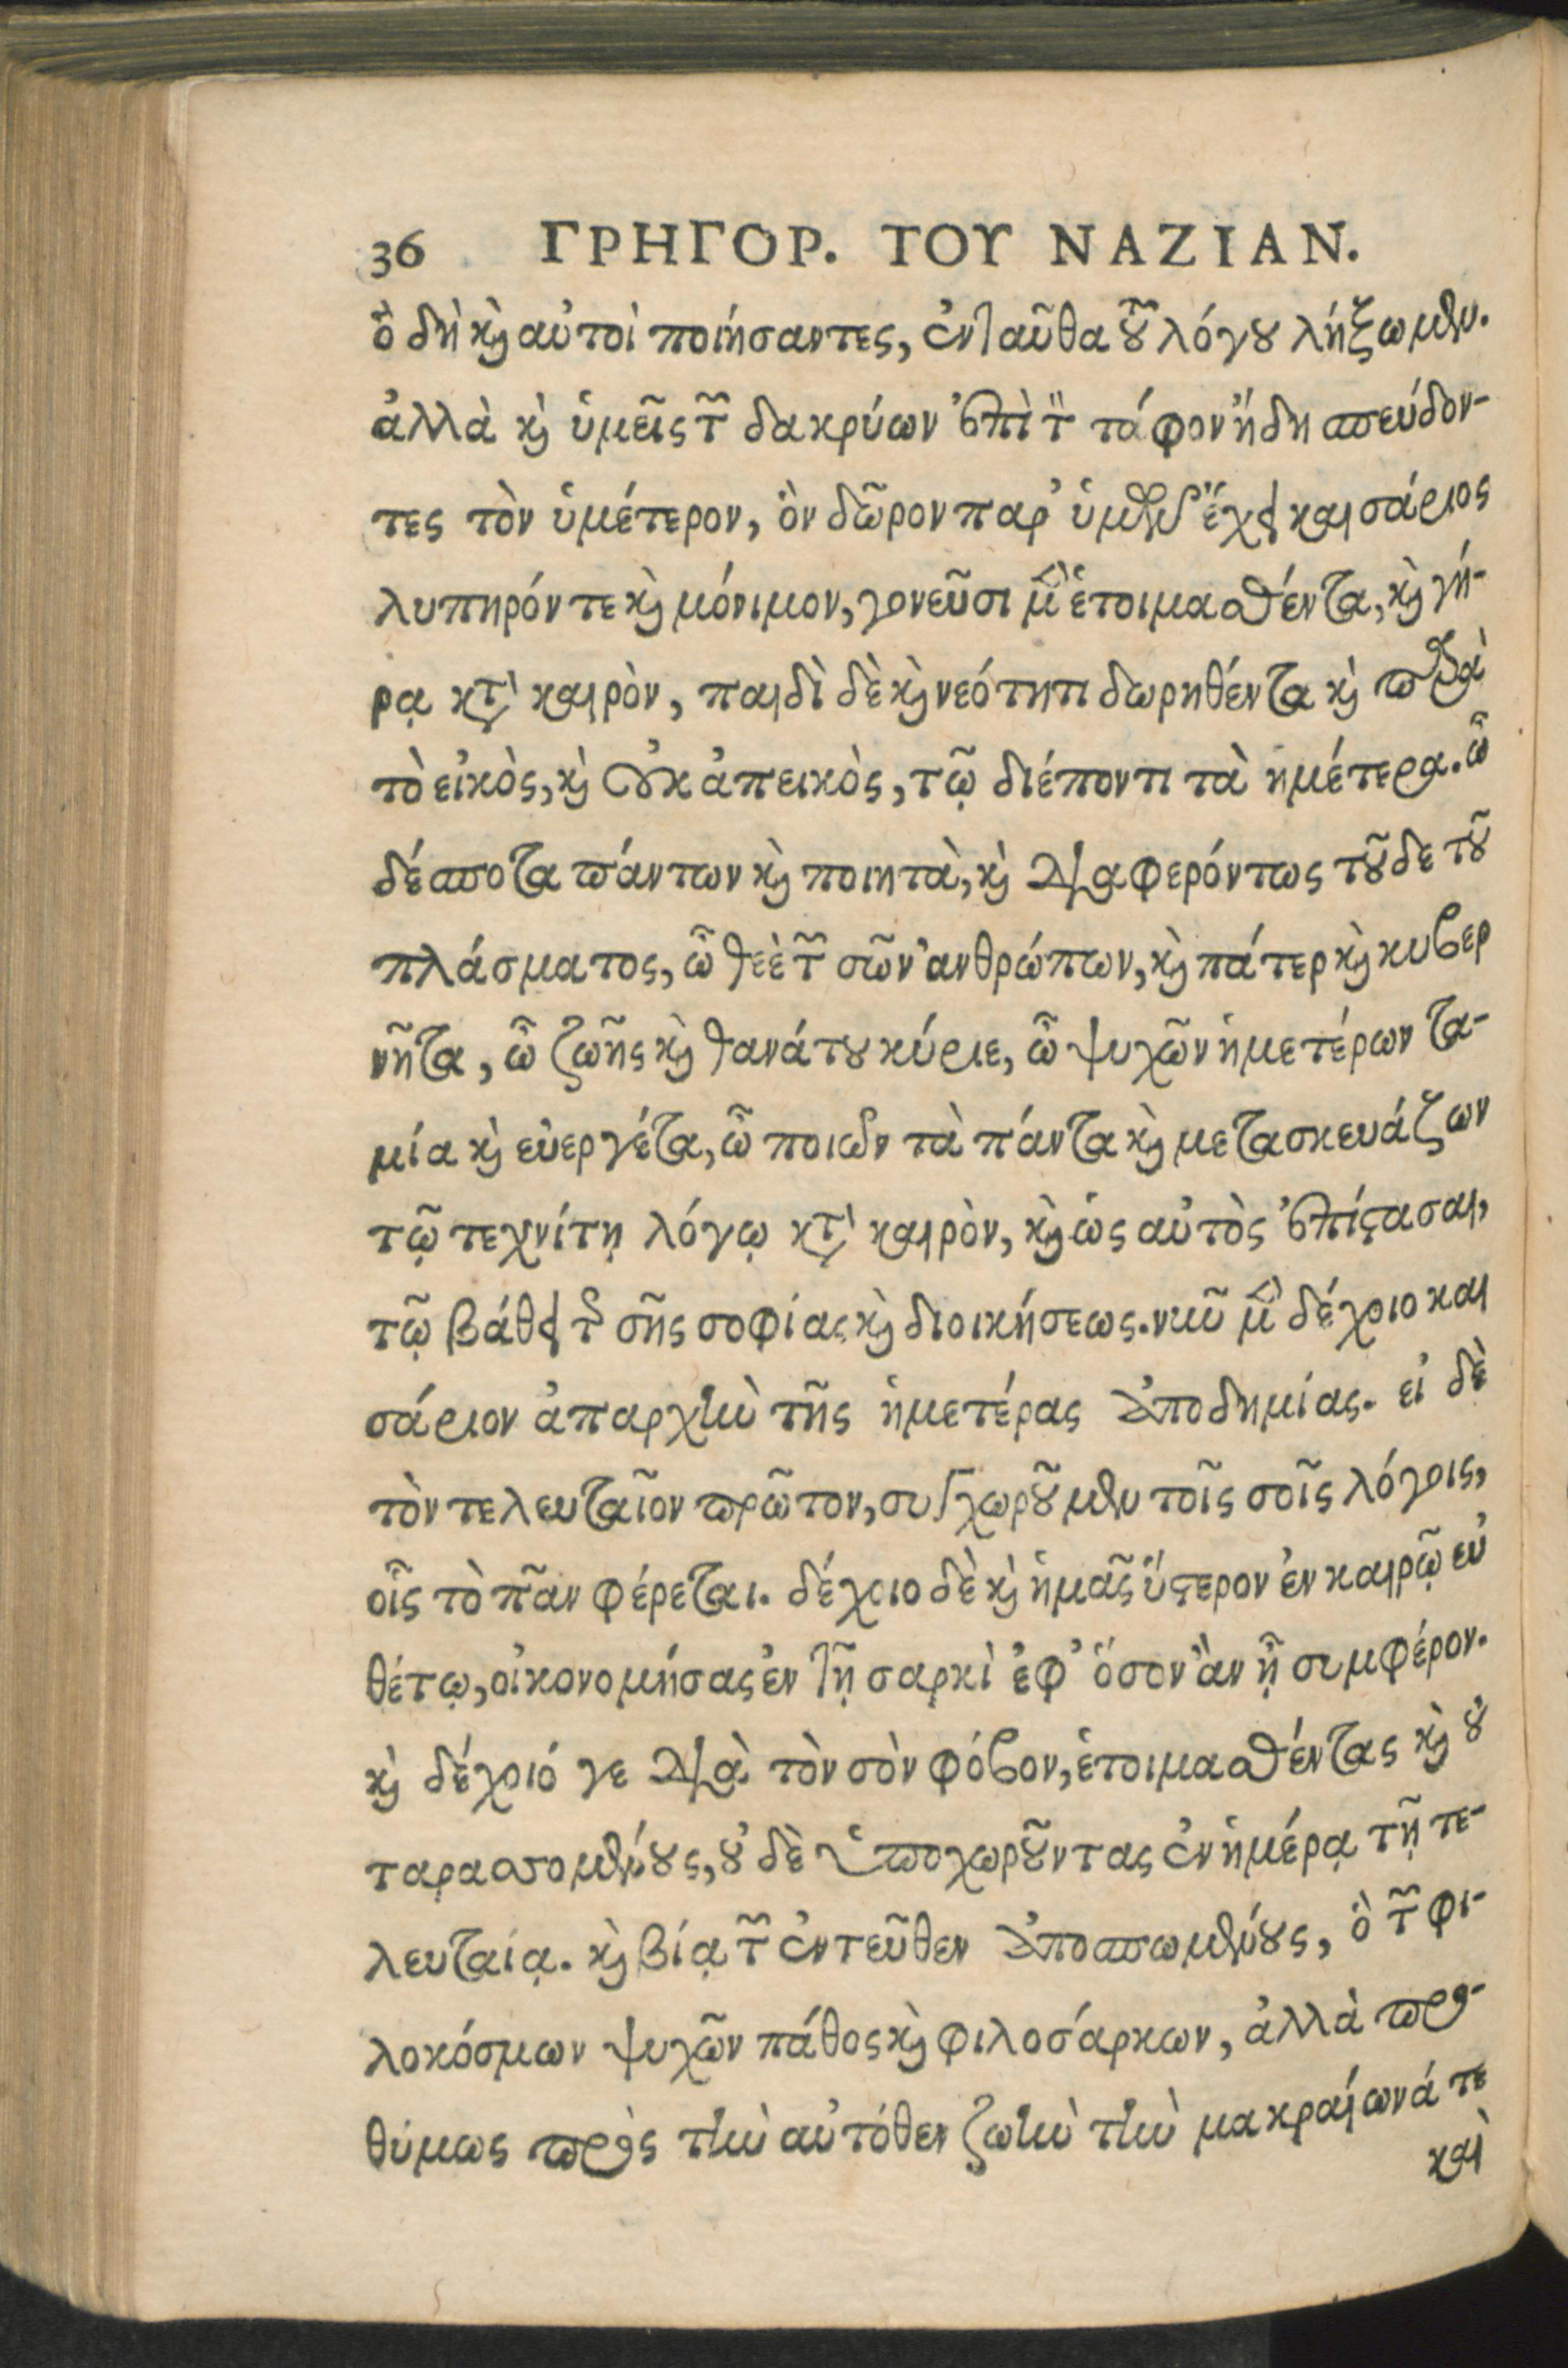 36 ΓΡΗΓΟΡ. ΤΟΥ ΝΑΖΙΑΝ.
ὃ δὴ καὶ αὐτοὶ ποιήσαντες, ἐνταῦθα τοῦ λόγου λήξωμεν.
ἀλλὰ καὶ ὑμεῖς τῶν δακρύων ἐπὶ τὸν τάφον ἤδη σπεύδον-
τες τὸν ὑμέτερον, ὃν δῶρον παρ' ὑμῶν ἔχει καισάριος
λυπηρόν τε καὶ μόνιμον, γονεῦσι μὲν ἑτοιμασθέντα, καὶ γή-
ρᾳ κατὰ καιρὸν, παιδὶ δὲ καὶ νεότητι δωρηθέντα καὶ παρὰ
τὸ εἰκὸς, καὶ οὐκ ἀπεικὸς, τῷ διέποντι τὰ ἡμέτερα. ὦ
δέσποτα πάντων καὶ ποιητὰ, καὶ διαφερόντως τοῦδε τοῦ
πλάσματος, ὦ θεὲ τῶν σῶν ἀνθρώπων, καὶ πάτερ καὶ κυβερ
νῆτα, ὦ ζωῆς καὶ θανάτου κύριε, ὦ ψυχῶν ἡμετέρων τα-
μία καὶ εὐεργέτα, ὦ ποιῶν τὰ πάντα καὶ μετασκευάζων
τῷ τεχνίτῃ λόγῳ κατὰ καιρὸν, καὶ ὡς αὐτὸς ἐπίστασαι,
τῷ βάθει τῆς σῆς σοφίας καὶ διοικήσεως. νῦν μὲν δέχοιο και
σάριον ἀπαρχὴν τῆς ἡμετέρας ἀποδημίας. εἰ δὲ
τὸν τελευταῖον πρῶτον, συγχωροῦμεν τοῖς σοῖς λόγοις,
οἷς τὸ πᾶν φέρεται. δέχοιο δὲ καὶ ἡμᾶς ὕστερον ἐν καιρῷ εὐ
θέτῳ, οἰκονομήσας ἐν τῇ σαρκὶ ἐφ' ὅσον ἂν ᾖ συμφέρον.
καὶ δέχοιό γε διὰ τὸν σὸν φόβον, ἑτοιμασθέντας καὶ οὐ
ταρασσομένους, οὐδὲ ὑποχωροῦντας ἐν ἡμέρᾳ τῇ τε-
λευταίᾳ. καὶ βίᾳ τῶν ἐντεῦθεν ἀποσπωμένους, ὃ τῶν φι-
λοκόσμων ψυχῶν πάθος καὶ φιλοσάρκων, ἀλλὰ προ-
θύμως πρὸς τὴν αὐτόθεν ζωὴν τὴν μακραίωνά τε
καὶ